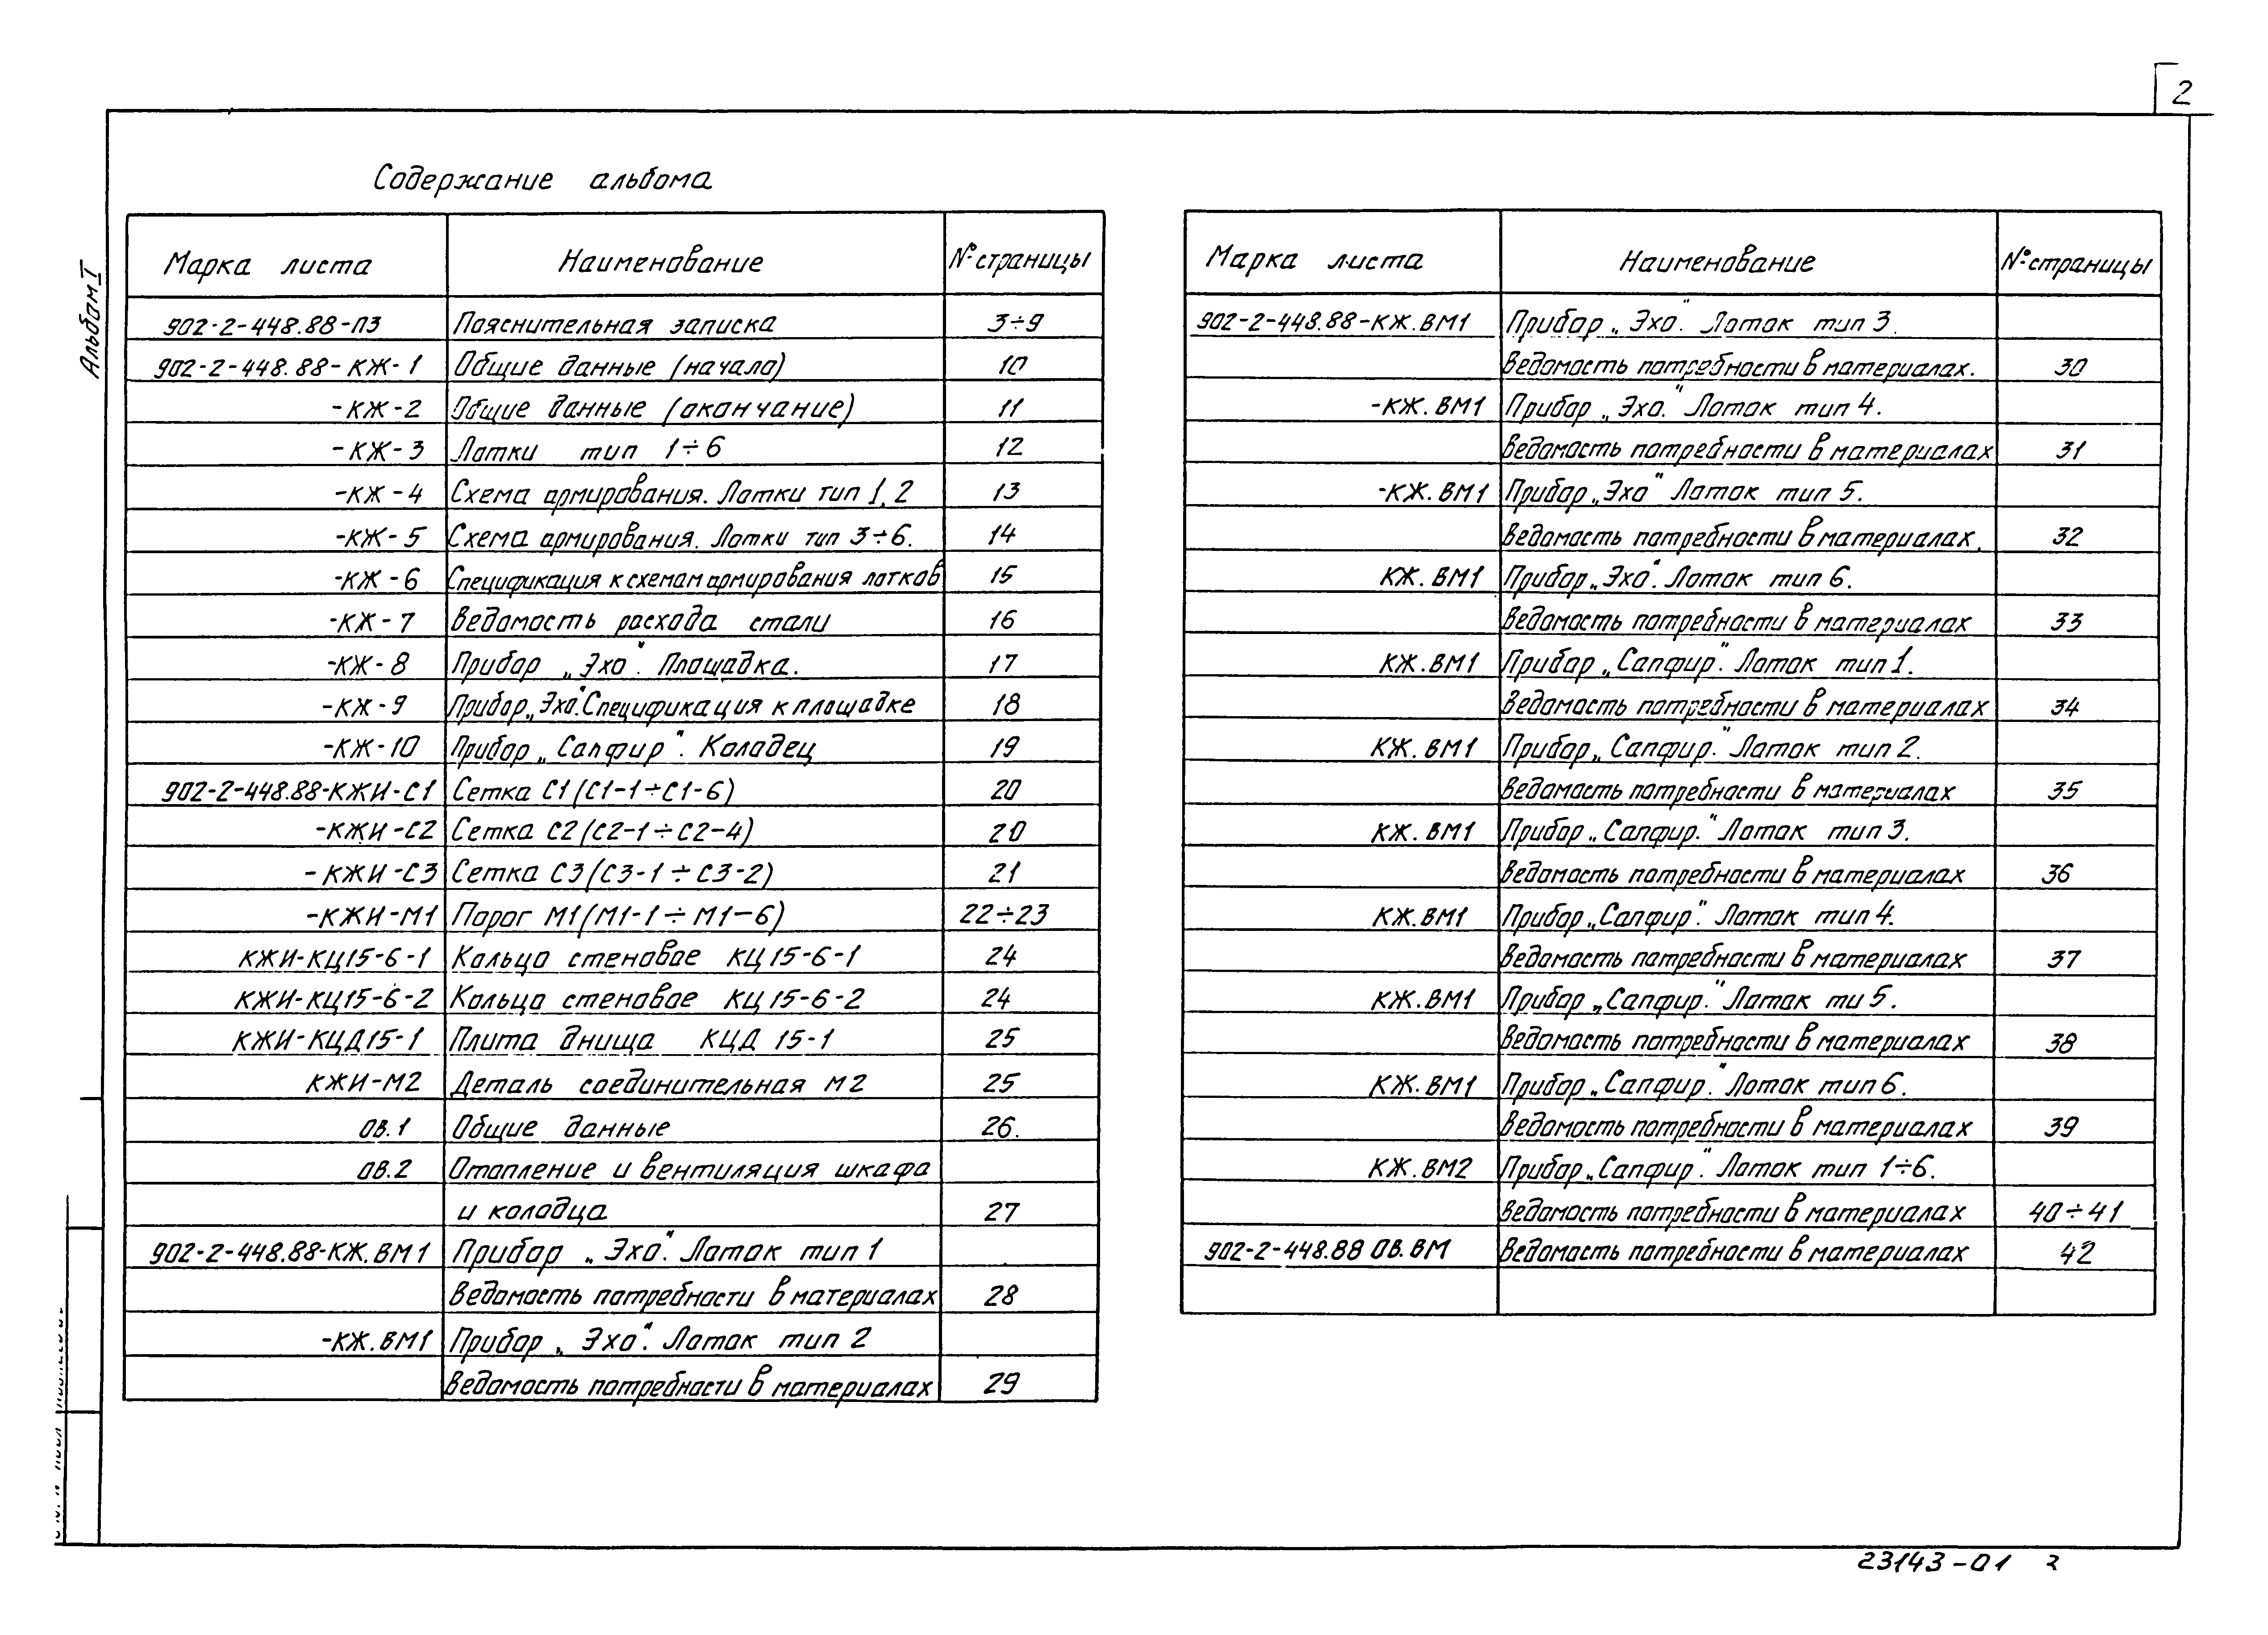 2
Альбом I
Содержание альбома
Марка листа Наименование № страницы
902-2-448.88-ПЗ Пояснительная записка 3÷9
902-2-448.88-КЖ-1 Общие данные (начало) 10
-КЖ-2 Общие данные (окончание) 11
-КЖ-3 Лотки тип 1÷6 12
-КЖ-4 Схема армирования. Лотки тип 1,2 13
-КЖ-5 Схема армирования. Лотки тип 3÷6. 14
-КЖ-6 Спецификация к схемам армирования лотков 15
-КЖ-7 Ведомость расхода стали 16
-КЖ-8 Прибор „Эхо". Площадка. 17
-КЖ-9 Прибор „Эхо". Спецификация к площадке 18
-КЖ-10 Прибор „Сапфир". Колодец 19
902-2-448.88-КЖИ-С1 Сетка С1 (С1-1÷С1-6) 20
-КЖИ-С2 Сетка С2 (С2-1÷С2-4) 20
-КЖИ-С3 Сетка С3 (С3-1÷С3-2) 21
-КЖИ-М1 Порог М1 (М1-1÷М1-6) 22÷23
КЖИ-КЦ15-6-1 Кольцо стеновое КЦ15-6-1 24
КЖИ-КЦ15-6-2 Кольцо стеновое КЦ15-6-2 24
КЖИ-КЦД15-1 Плита днища КЦД 15-1 25
КЖИ-М2 Деталь соединительная М2 25
ОВ.1 Общие данные 26.
ОВ.2 Отопление и вентиляция шкафа
и колодца 27
902-2-448.88-КЖ.ВМ1 Прибор „Эхо". Лоток тип 1
Ведомость потребности в материалах 28
-КЖ.ВМ1 Прибор „Эхо". Лоток тип 2
Ведомость потребности в материалах 29
Марка листа Наименование № страницы
902-2-448.88-КЖ.ВМ1 Прибор „Эхо". Лоток тип 3.
Ведомость потребности в материалах. 30
-КЖ.ВМ1 Прибор „Эхо." Лоток тип 4.
Ведомость потребности в материалах 31
-КЖ.ВМ1 Прибор „Эхо" Лоток тип 5.
Ведомость потребности в материалах. 32
КЖ.ВМ1 Прибор „Эхо". Лоток тип 6.
Ведомость потребности в материалах 33
КЖ.ВМ1 Прибор „Сапфир". Лоток тип 1.
Ведомость потребности в материалах 34
КЖ.ВМ1 Прибор „Сапфир." Лоток тип 2.
Ведомость потребности в материалах 35
КЖ.ВМ1 Прибор „Сапфир." Лоток тип 3.
Ведомость потребности в материалах 36
КЖ.ВМ1 Прибор „Сапфир". Лоток тип 4.
Ведомость потребности в материалах 37
КЖ.ВМ1 Прибор „Сапфир." Лоток ти 5.
Ведомость потребности в материалах 38
КЖ.ВМ1 Прибор „Сапфир." Лоток тип 6.
Ведомость потребности в материалах 39
КЖ.ВМ2 Прибор „Сапфир". Лоток тип 1÷6.
Ведомость потребности в материалах 40÷41
902-2-448.88 ОВ.ВМ Ведомость потребности в материалах 42
23143-01